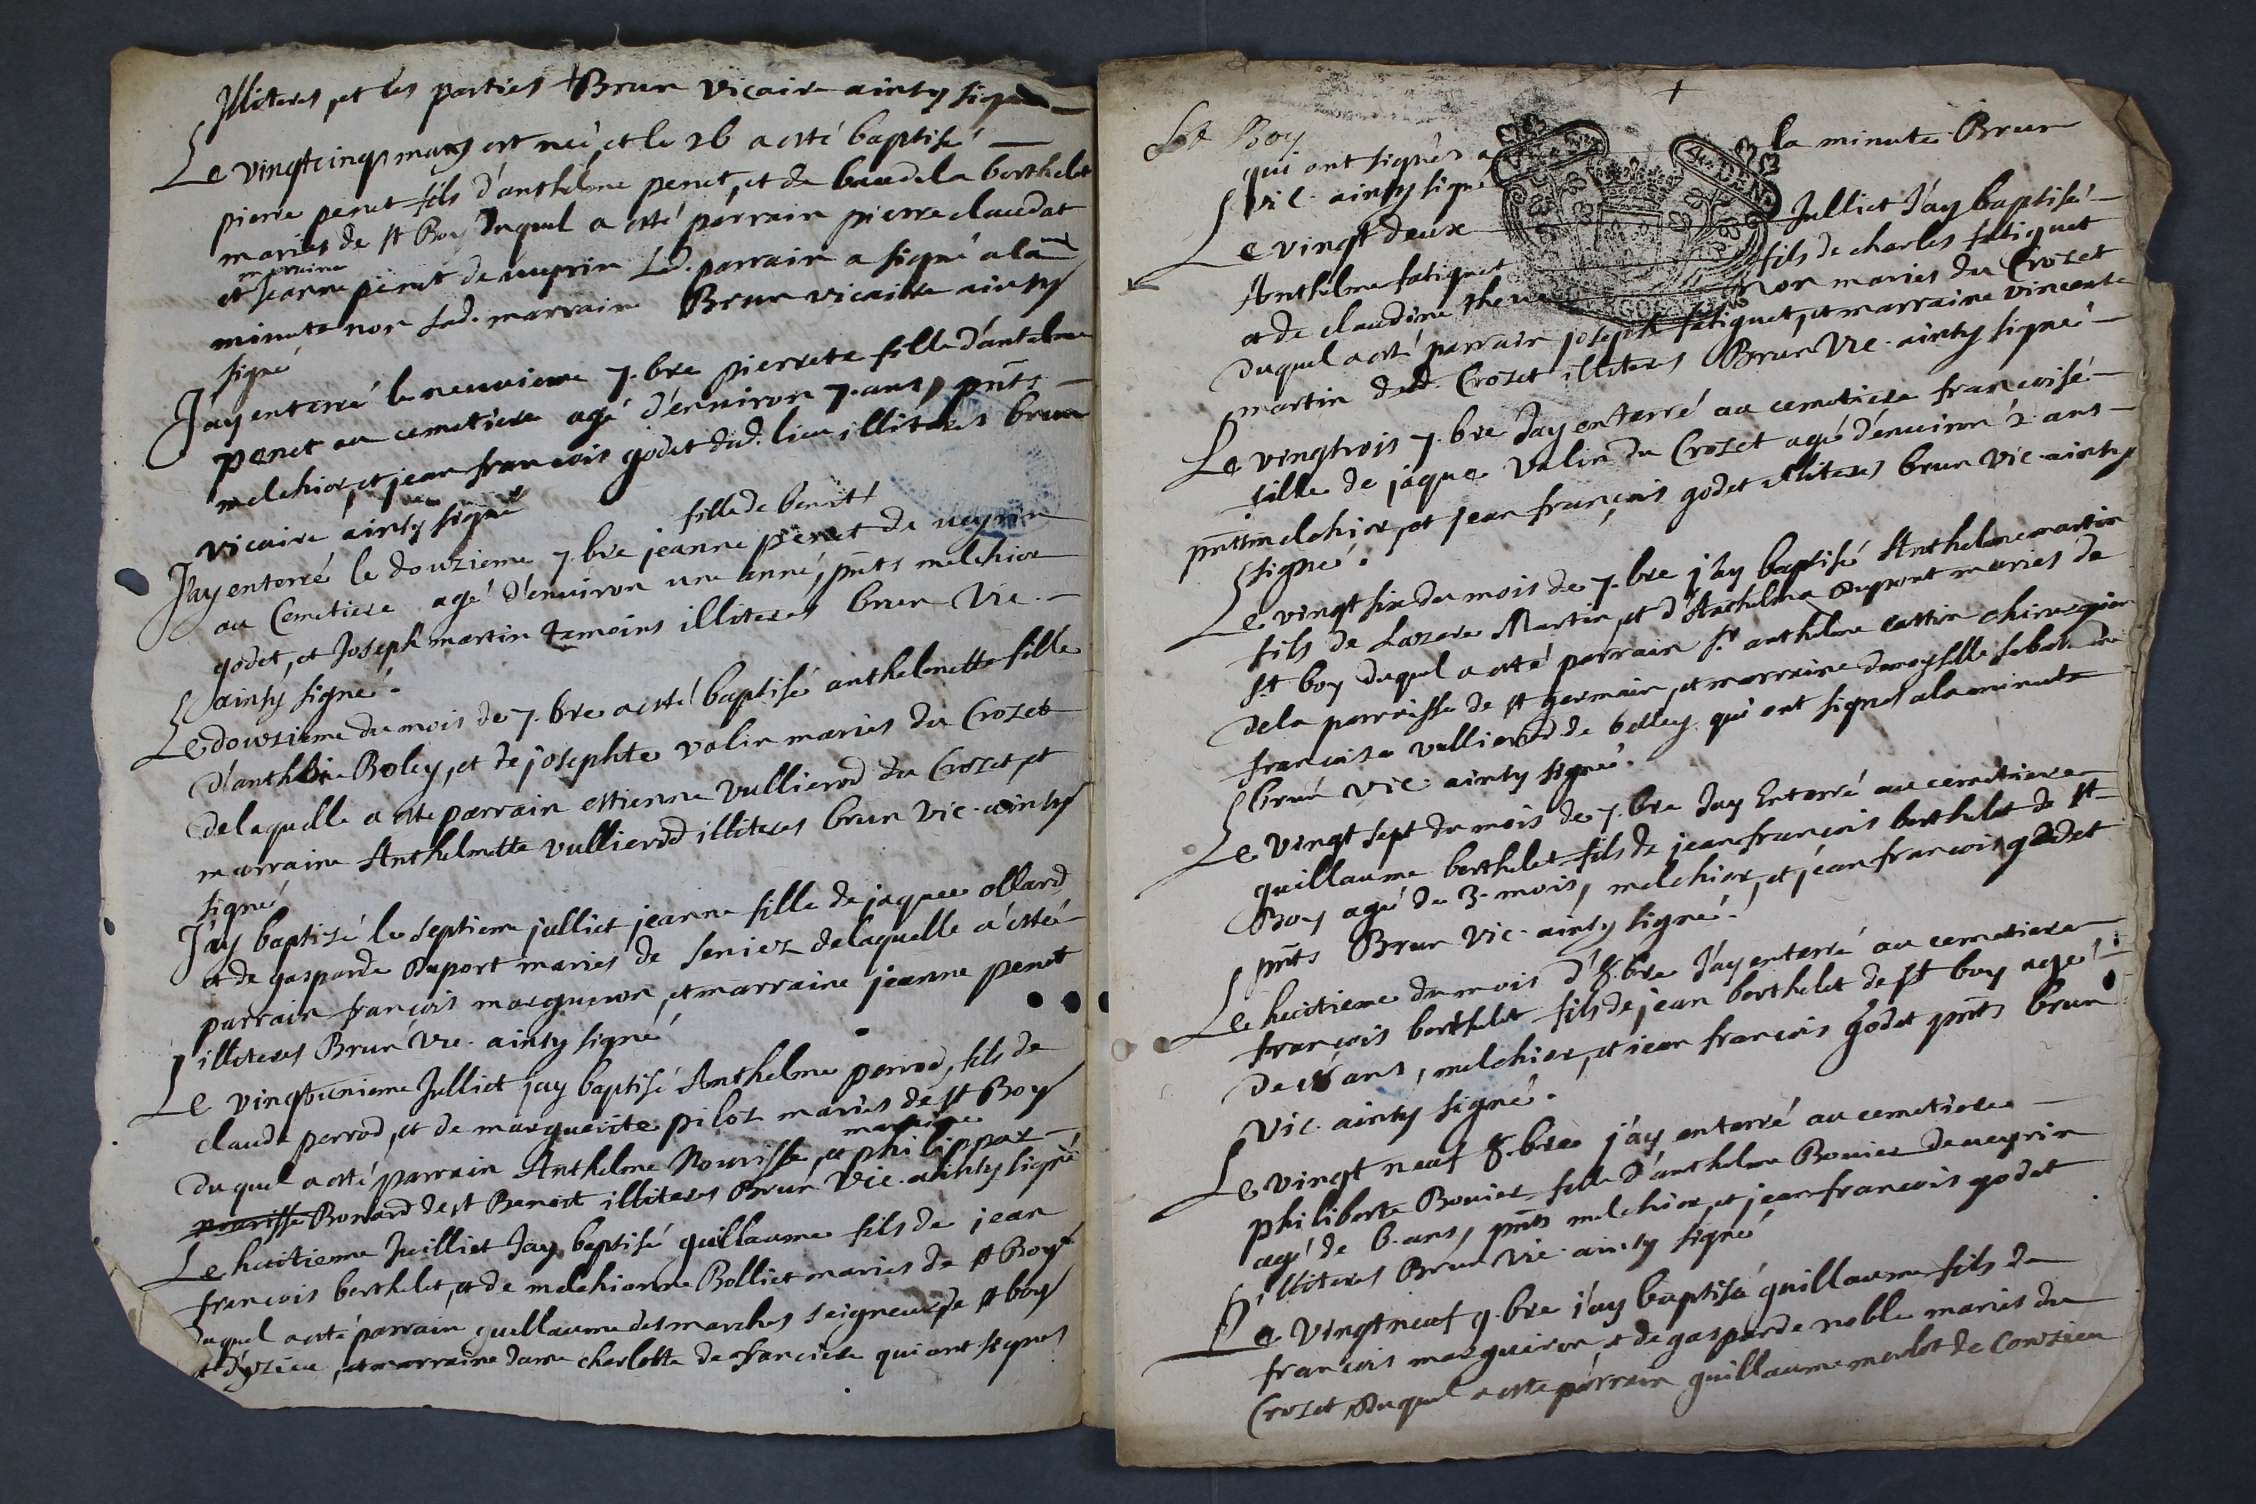 Illiteres, et les parties + Brun vicaire ainsy signé
Le vingtcinq mars est née, et le 26 a esté baptisé
pierre penet fils d'anthelme penet, et de baudela berthelet
mariés de st Boy duquel a esté parrain pierre claudat
marraine
et jeanne penet de neyrin Led. parrain a signé a la
minute non lad. marraine Brun vicaire ainsy
signé
J'ay enterré le neuvieme 7.bre pierrete fille d'antelme
penet au cemetiere agé d'environ 7. ans, pnts
melchior, et jean francois godet dud. lieu illiteres brun
vicaire ainsy signé
fille de benoit +
J'ay enterré le douzieme 7.bre jeanne penet de neyrin
au Cemetiere agé d'environ une anné, pnts melchior
godet, et Joseph martin temoins illiteres brun Vic.
ainsy signé.
Le douzieme du mois de 7.bre a esté baptisé anthelmette fille
d'anthelme Boley, et de josephte valin mariés du Crozet
de laquelle a este parrain estienne vullierod du Crozet et
marraine Anthelmette vullierod illiteres brun vic. ainsy
signé
J'ay baptizé le septieme julliet jeanne fille de jaques ollard
et de gasparde Duport mariés de seniez delaquelle a esté
parrain françois margueron, et marraine jeanne penet
illiteres Brun Vic. ainsy signé
Le vingtunieme Julliet jay baptisé Anthelme perrod, fils de
claude perrod, et de marguerite piloz mariés de st Boy
marraine
duquel a esté parrain Anthelme Nourisse, et philippaz
nourisse Bonard de st Benoit illiteres Brun Vic. ainsy signé
Le huitieme Juilliet Jay baptisé guillaume fils de jean
francois berthelet, et de melchionne Bolliet mariés de st Boy
duquel a esté parrain guillaume desmarches seigneur de st boy
et d'yzieu, et marraine dame charlotte de franciere qui ont signés
St Boy
qui ont signés a la minute Brun
vic. ainsy signé
Le vingt deux Julliet J'ay baptisé
Anthelme fatiguet fils de charles fatiguet
et de claudine mariés du Crozet
duquel a esté parrain joseph fatiguet, et marraine vincente
martin dud. Crozet illiteres Brun Vic. ainsy signé
Le vingtrois 7.bre J'ay enterré au cemetiere françoise
fille de jaque Valin du Crozet agé d'environ 2 ans
pnts melchior, et jean françois godet illiteres brun vic. ainsy
signé.
Le vingt six du mois de 7.bre j'ay baptisé Anthelme martin
fils de Lazare Martin, et d'Anthelma Dupont mariés de
st boy duquel a esté parrain Sr. anthelme cattin chirurgien
de la parroisse de st germain, et marraine demoyselle
francoise vullierod de belley qui ont signés a la minute
brun vic ainsy signé.
Le vingt sept du mois de 7.bre Jay Enterré au cemetiere
guillaume berthelet fils de jean francois berthelet de st
Boy agé de 3. mois, melchior, et jean francois godet
pnts Brun Vic. ainsy signé.
Le huitieme du mois d'8.bre J'ay enterré au cemetiere
françois berthelet fils de jean berthelet de st boy age
de ans, melchior, et jean françois godet pnts brun
Vic. ainsy signé.
Le vingt neuf 8.bre j'ay enterré au cemetiere
philiberte Bovier fille d'anthelme Bovier de neyrin
agé de 6. ans, pnts melchior, et jean francois godet
illiteres Brun Vic. ainsy signé
Le Vingtneuf 9.bre j'ay baptisé guillaume fils de
francois margueron, et de gasparde noble mariés du
Crozet, duquel a este parrain guillaume merlot de Conzieu